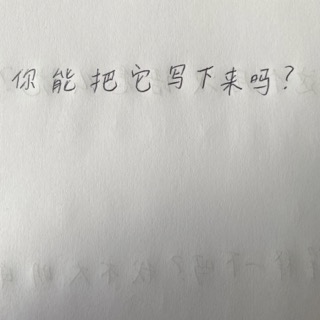 你能把它写下来吗？